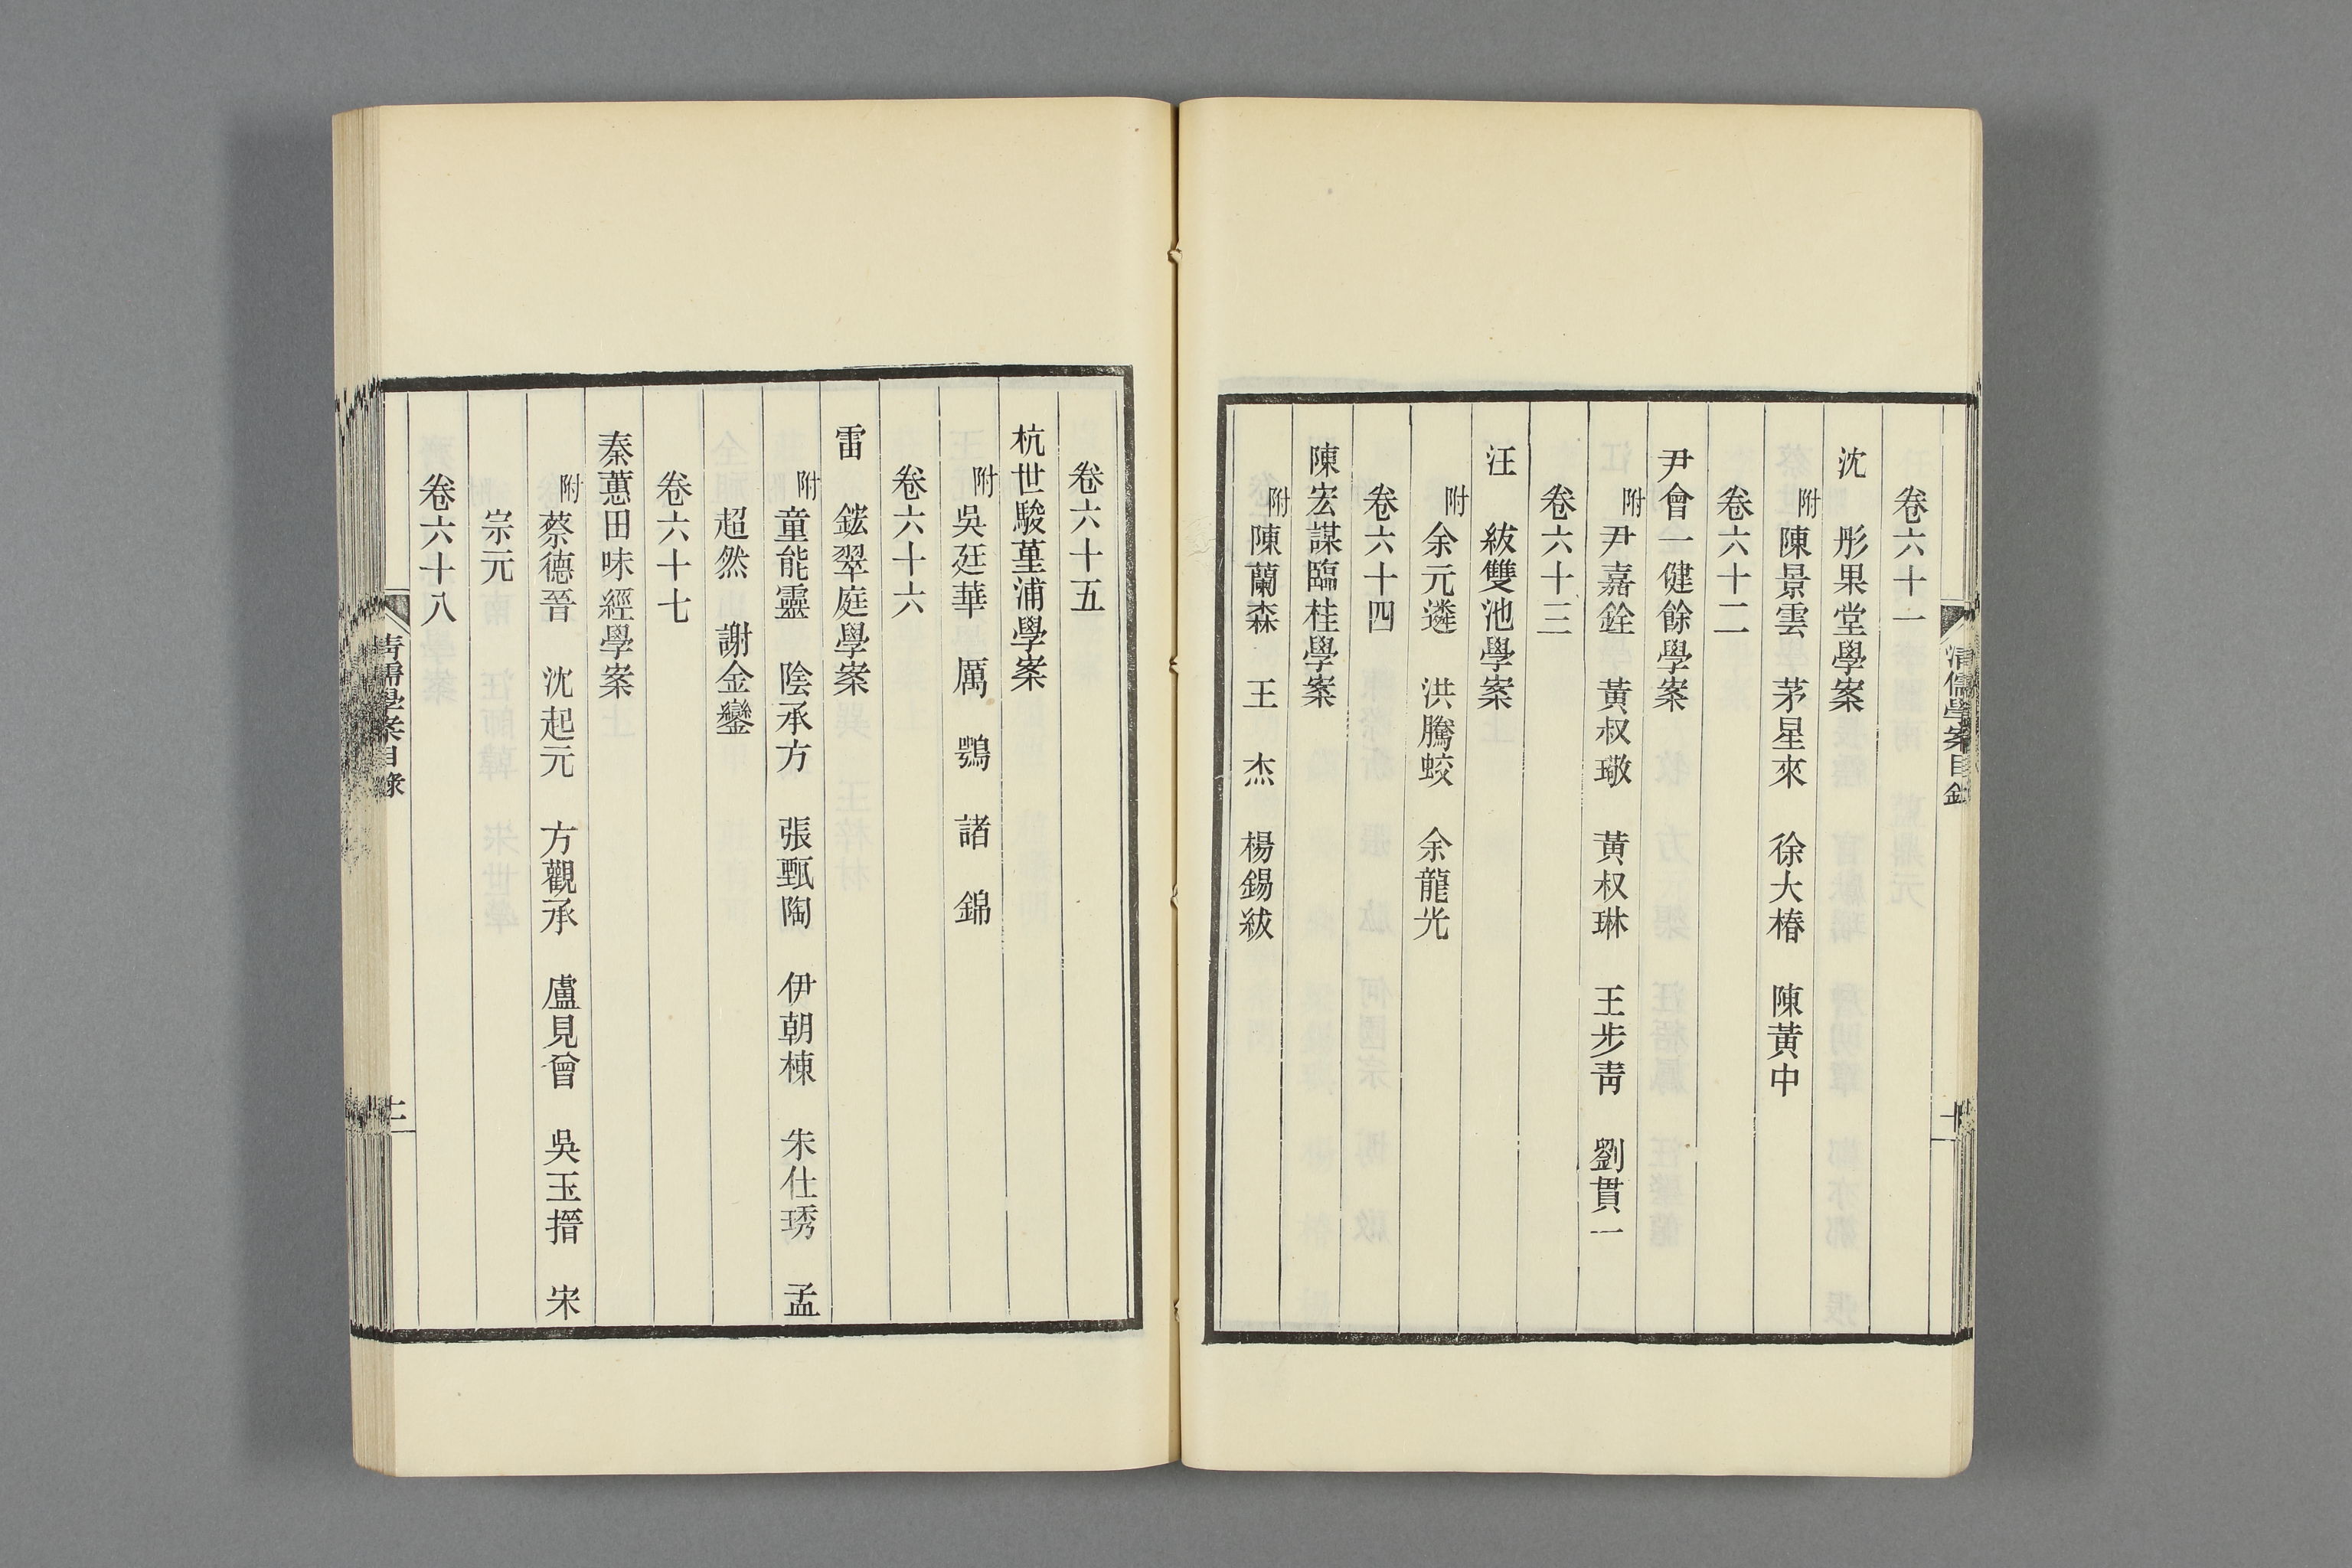 卷六十一
沈　彤果堂學案
附陳景雲　茅星來　徐大椿　陳黃中
卷六十二
尹會一健餘學案
附尹嘉銓　黃叔璥　黃叔琳　王步靑　劉貫一
卷六十三
汪　紱雙池學案
附余元遴　洪騰蛟　余龍光
卷六十四
陳宏謀臨桂學案
附陳蘭森　王　杰　楊錫紱
清儒學案目錄
卷六十五
杭世駿堇浦學案
附吳廷華　厲　鶚　諸　錦
卷六十六
雷　鋐翠庭學案
附童能靈　陰承方　張甄陶　伊朝棟　朱仕琇　孟
超然　謝金鑾
卷六十七
秦蕙田味經學案
附蔡德晉　沈起元　方觀承　盧見曾　吳玉搢　宋
宗元
卷六十八
清儒學案目錄